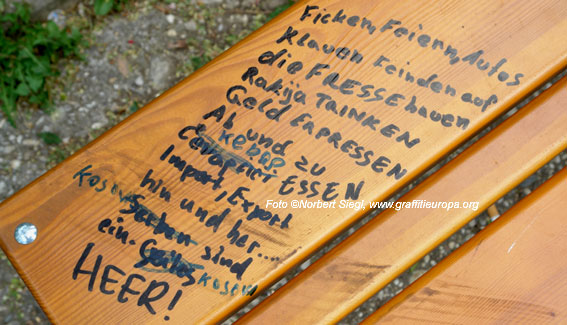 Ficken, Feiern, Autos
Klauen Feinden auf
die FRESSE hauen
Rakija TRINKEN
Geld ERPRESSEN
Ab und zu
KEBAP
ESSEN
Import, Export
hin und her....
Kosovo Serben sind
ein Kosovo
HEER!
Foto ©Norbert Siegl, www.graffitieuropa.org